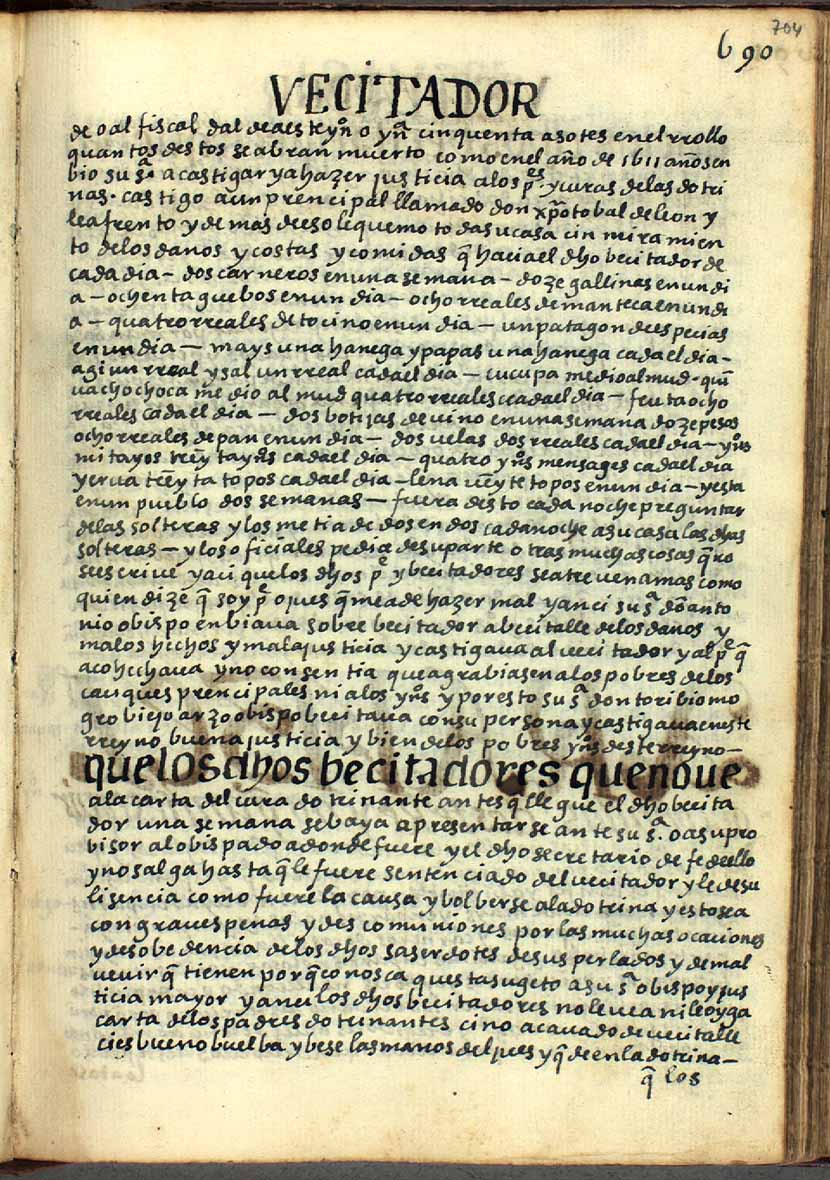 704
690
VECITADOR
de o al fiscal dal de aes te yn͂o yn͂ cinquenta asotes en el rrollo
quantos destos se abran muerto como en el año de 1611 años en
bio su sª a castigar y a hazer justicia a los pes y curas de las dotri
nas - castigo a un prencipal llamado don xp͂otobal de leon y
le afrento y demas de eso le quemo toda su casa cin miramien
to de los danos y costas y comidas q͂ hacia el dho becitador de
cada dia - dos carneros en una semana - doze gallinas en un di
a - ochenta guebos en un dia - ocho rreales de manteca en un di
a - quatro rreales de tocino en un dia - un patagon de especias
en un dia - mays una hanega y papas una hanega cada el dia -
agi un rreal y sal un rreal cada el dia - cucupa medio almud - quin͂
ua chochoca medio almud quatro rreales cada el dia - fruta ocho
rreales cada el dia - dos botijas de uino en una semana doze pesos
ocho rreales de pan en un dia - dos uelas dos rreales cada el dia - yn͂s
mitayos treynta yn͂s cada el dia - quatro yn͂s mensages cada el dia
yerua treyta topos cada el dia - lena ueyte topos en un dia - y esta
en un pueblo dos semanas - fuera desto cada noche preguntar
de las solteras y los metia de dos en dos cada noche a su casa las dhas
solteras - y los oficiales pedia de su parte otras muchas cosas q͂ no
se escriue y aci que los dhos pe y becitadores se atreuen a mas como
quien dize q͂ soy pe o jues q͂ me a de hazer mal y anci su sª don anto
nio obispo enbiaua sobre becitador a becitalle de los danos y
malos hechos y mala justicia y castigaua al uecitador y al pe q͂
acohechaua y no consentia que agrabiasen a los pobres de los
caciques prencipales ni a los yn͂s y por esto su sª don toribio mo
grobiejo arzoobispo becitaua con su persona y castigaua en este
rreyno buena justicia y bien de los pobres yn͂s deste rreyno -
que los dhos becitadores que no ue
a la carta del cura dotrinante antes q͂ llegue el dho becita
dor una semana se baya a presentarse ante su sª o a su pro
bisor al obispado adonde fuere y el dho secretario de fe de ello
y no salga hasta q͂ le fuere sentenciado del uecitador y le de su
lisencia como fuere la causa y bolberse a la dotrina y esto sea
con graues penas y descomuniones por las muchas ocaciones
y desobedencia de los dhos saserdotes de sus perlados y de mal
ueuir q͂ tienen porq͂ conosca questa sugeto a su sª obispo y jus
ticia mayor y anci los dhos becitadores no le uea ni le oyga
carta de los padres dotrinantes cino acauado de uecitalle
ci es bueno buelba y bese las manos del jues y q͂de en la dotrina -
q͂ los